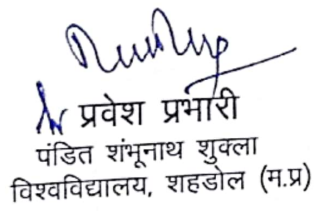 प्रवेश प्रभारी
पंडित शंभूनाथ शुक्ला
विश्वविद्यालय, शहडोल (म.प्र)